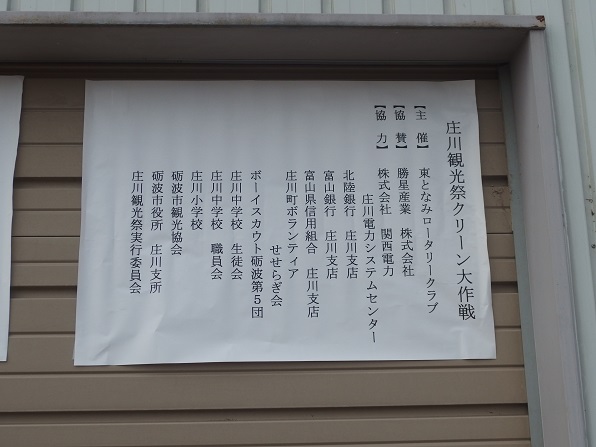 庄川観光祭クリーン大作戦
【主　催】　東となみロータリークラブ
【協　賛】　勝星産業　株式会社
【協　力】　株式会社　関西電力
庄川電力システムセンター
北陸銀行　庄川支店
富山銀行　庄川支店
富山県信用組合　庄川支店
庄川町ボランティア
せせらぎ会
ボーイスカウト砺波第５団
庄川中学校　生徒会
庄川中学校　職員会
庄川小学校
砺波市観光協会
砺波市役所　庄川支所
庄川観光祭実行委員会